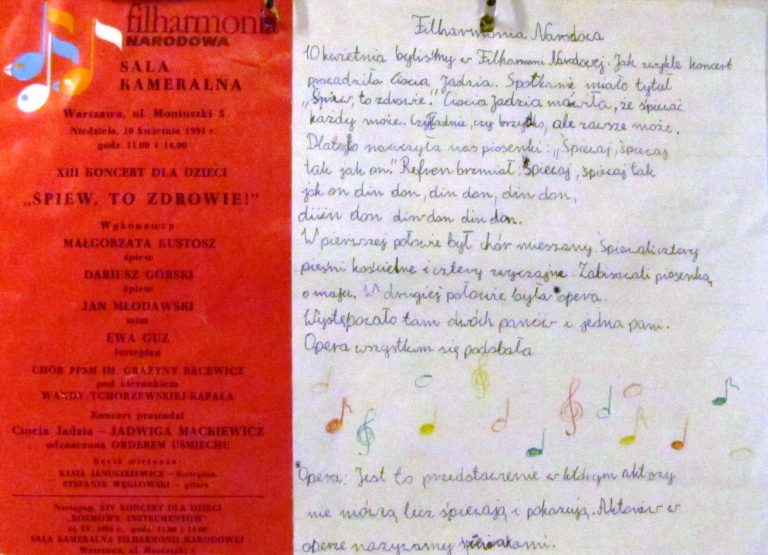 filharmonia
NARODOWA
SALA
KAMERALNA
Warszawa, ul. Moniuszki 5
Niedziela, 10 kwietnia 1994 r.
godz. 11.00 i 14.00
XIII KONCERT DLA DZIECI
„ŚPIEW, TO ZDROWIE!"
Wykonawcy:
MAŁGORZATA KUSTOSZ
śpiew
DARIUSZ GÓRSKI
śpiew
JAN MŁODAWSKI
mim
EWA GUZ
fortepian
CHÓR PPSM IM. GRAŻYNY BACEWICZ
pod kierunkiem
WANDY TCHÓRZEWSKIEJ-KAPAŁA
Koncert prowadzi
Ciocia Jadzia – JADWIGA MACKIEWICZ
odznaczona ORDEREM UŚMIECHU
Kącik wirtuoza:
KASIA JANUSZKIEWICZ – fortepian
STEFANEK WĘGŁOWSKI – gitara
Następny, XIV KONCERT DLA DZIECI
"ROZMOWY INSTRUMENTÓW"
24. IV. 1994 r., godz. 11.00 i 14.00
SALA KAMERALNA FILHARMONII NARODOWEJ
Warszawa, ul. Moniuszki 5
Filharmonia Narodowa
10 kwietnia byliśmy w Filharmoni Narodowej. Jak zwykle koncert
prowadziła Ciocia Jadzia. Spotkanie miało tytuł
„Śpiew, to zdrowie." Ciocia Jadzia mówiła, że śpiewać
każdy może. Czy ładnie, czy brzytko, ale zawsze może.
Dlatego nauczyła nas piosenki: „Śpiewaj, śpiewaj
tak jak on." Refren brzmiał: Śpiewaj, śpiewaj tak
jak on din don, din don, din don,
diiin don din don din don.
W pierwszej połowie był chór mieszany. Śpiewali cztery
pieśni kościelne i cztery zwyczajne. Zabisowali piosenką
o maju. W drugiej połowie była opera.
Występowało tam dwóch panów i jedna pani.
Opera wszystkim się podobała.
Opera: Jest to przedstawienie w którym aktorzy
nie mówią lecz śpiewają i pokazują. Aktorów w
operze nazywamy śpiewakami.